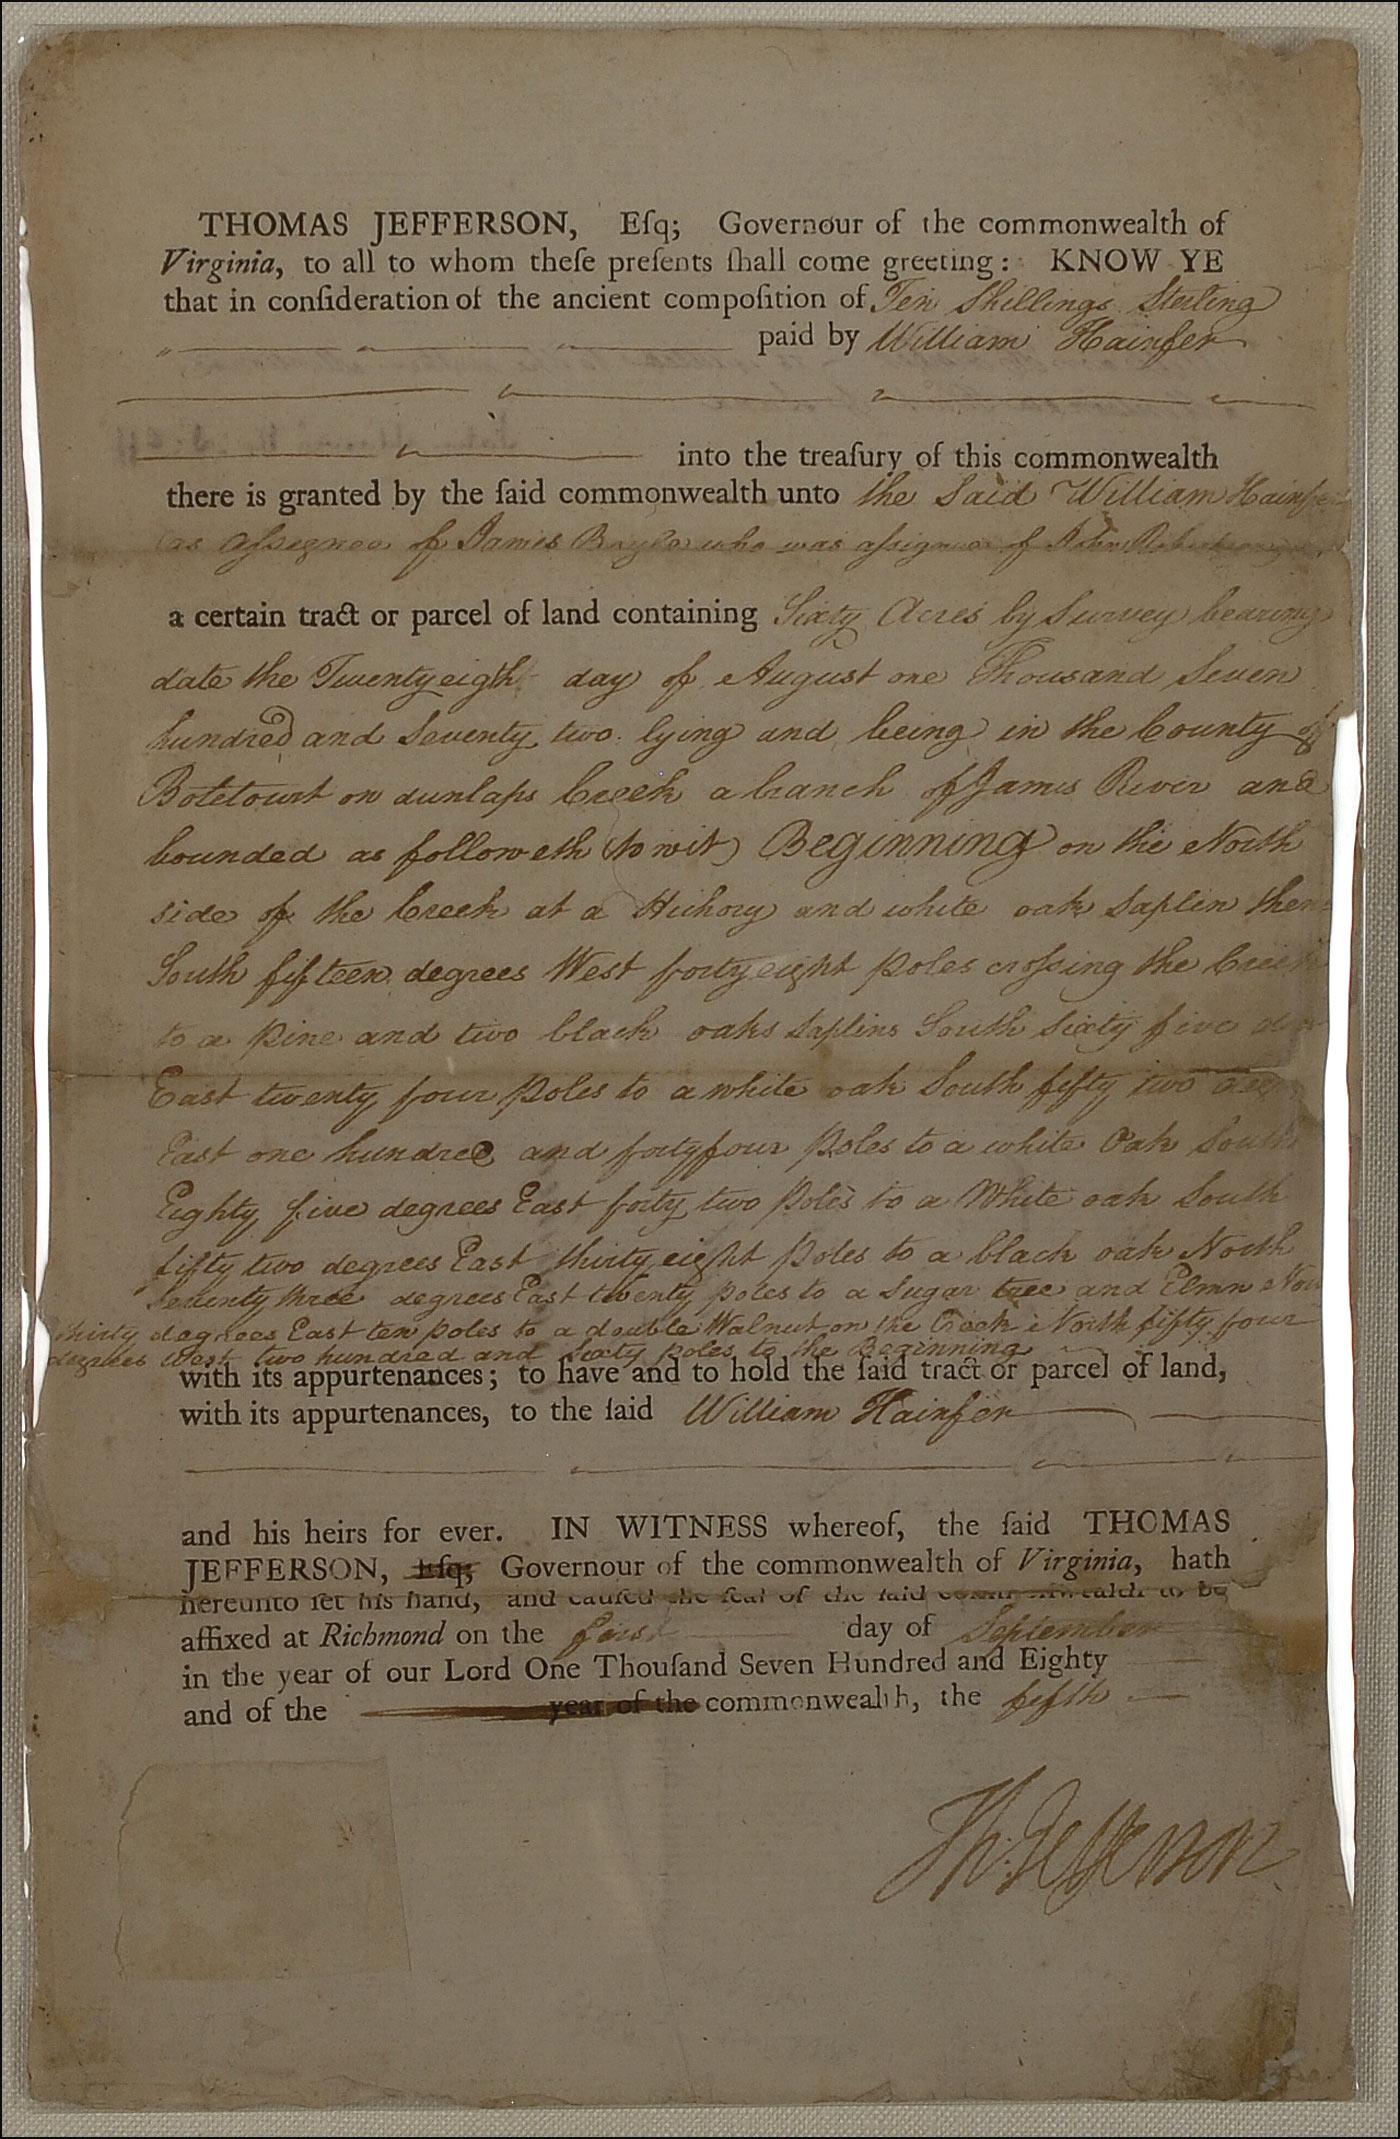 THOMAS JEFFERSON, Eſq; Governour of the commonwealth of
Virginia, to all to whom theſe preſents ſhall come greeting: KNOW YE
that in conſideration of the ancient compoſition of Ten Shillings Sterling
paid by William Hainſer
into the treaſury of this commonwealth
there is granted by the ſaid commonwealth unto the Said William Hainſer
as aſsignee of James who was aſsignee of John
a certain tract or parcel of land containing Sixty Acres by Survey bearing
date the Twentyeigth day of August one Thousand Seven
hundred and Seventy two lying and being in the County of
Botetourt on dunlaps Creek a branch of James River and
bounded as followeth (to wit) Beginning on the North
side of the Creek at a Hickory and white oak saplin
South fifteen degrees West forty eight poles croſsing the Creek
to a pine and two black oaks saplins South Sixty five
East twenty four poles to a white oak South fifty two
East one hundred and fortyfour poles to a white Oak South
Eighty five degrees East forty two poles to a White oak South
fifty two degrees East thirty eight poles to a black oak North
Seventy three degrees East twenty poles to a Sugar tree and Elmn
thirty degrees East ten poles to a double Walnut on the Creek North fifty four
degrees West two hundred and Sixty poles to the Beginning
with its appurtenances; to have and to hold the ſaid tract or parcel of land,
with its appurtenances, to the ſaid William Hainſer
and his heirs for ever. IN WITNESS whereof, the ſaid THOMAS
JEFFERSON, Eſq; Governour of the commonwealth of Virginia, hath
hereunto ſet his hand, and cauſed the ſeal of the ſaid commonwealth to be
affixed at Richmond on the first day of September
in the year of our Lord One Thouſand Seven Hundred and Eighty
and of the year of the commonwealth, the fifth
Th: Jefferson